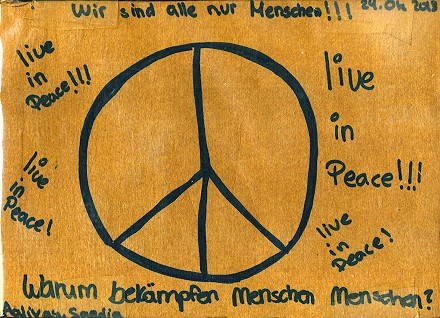 Wir sind alle nur Menschen!!! 24.04 2018
live
in
Peace!!!
live
in
Peace!!!
live
in
Peace!
live
in
Peace!
Warum bekämpfen Menschen Menschen?